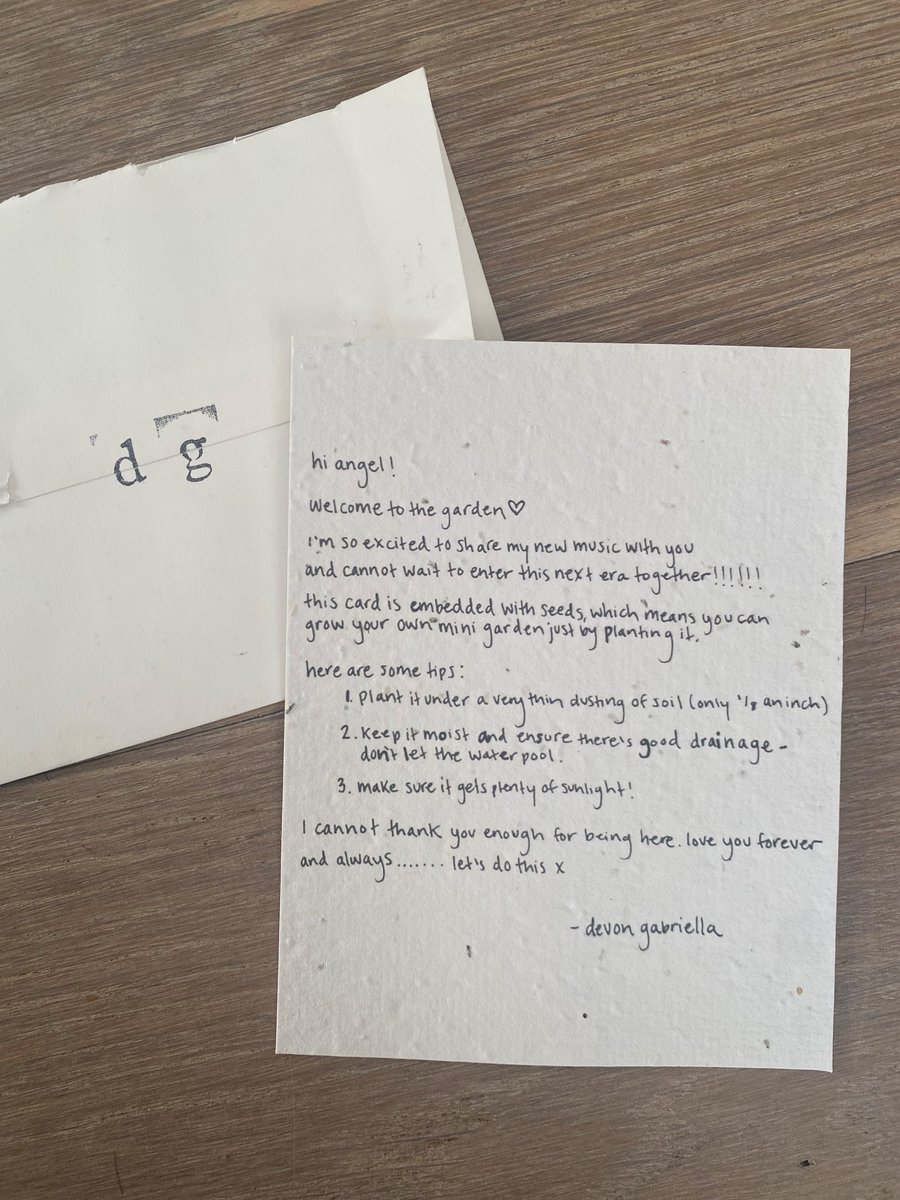 d g
hi angel!
Welcome to the garden♡
I'm so excited to share my new music with you
and cannot wait to enter this next era together!!!!!!
this card is embedded with seeds, which means you can
grow your own mini garden just by planting it.
here are some tips:
1. Plant it under a very thin dusting of soil (only 1/8 an inch)
2. Keep it moist and ensure there's good drainage -
don't let the water pool.
3. make sure it gets plenty of sunlight!
I cannot thank you enough for being here. love you forever
and always....... let's do this x
- devon gabriella